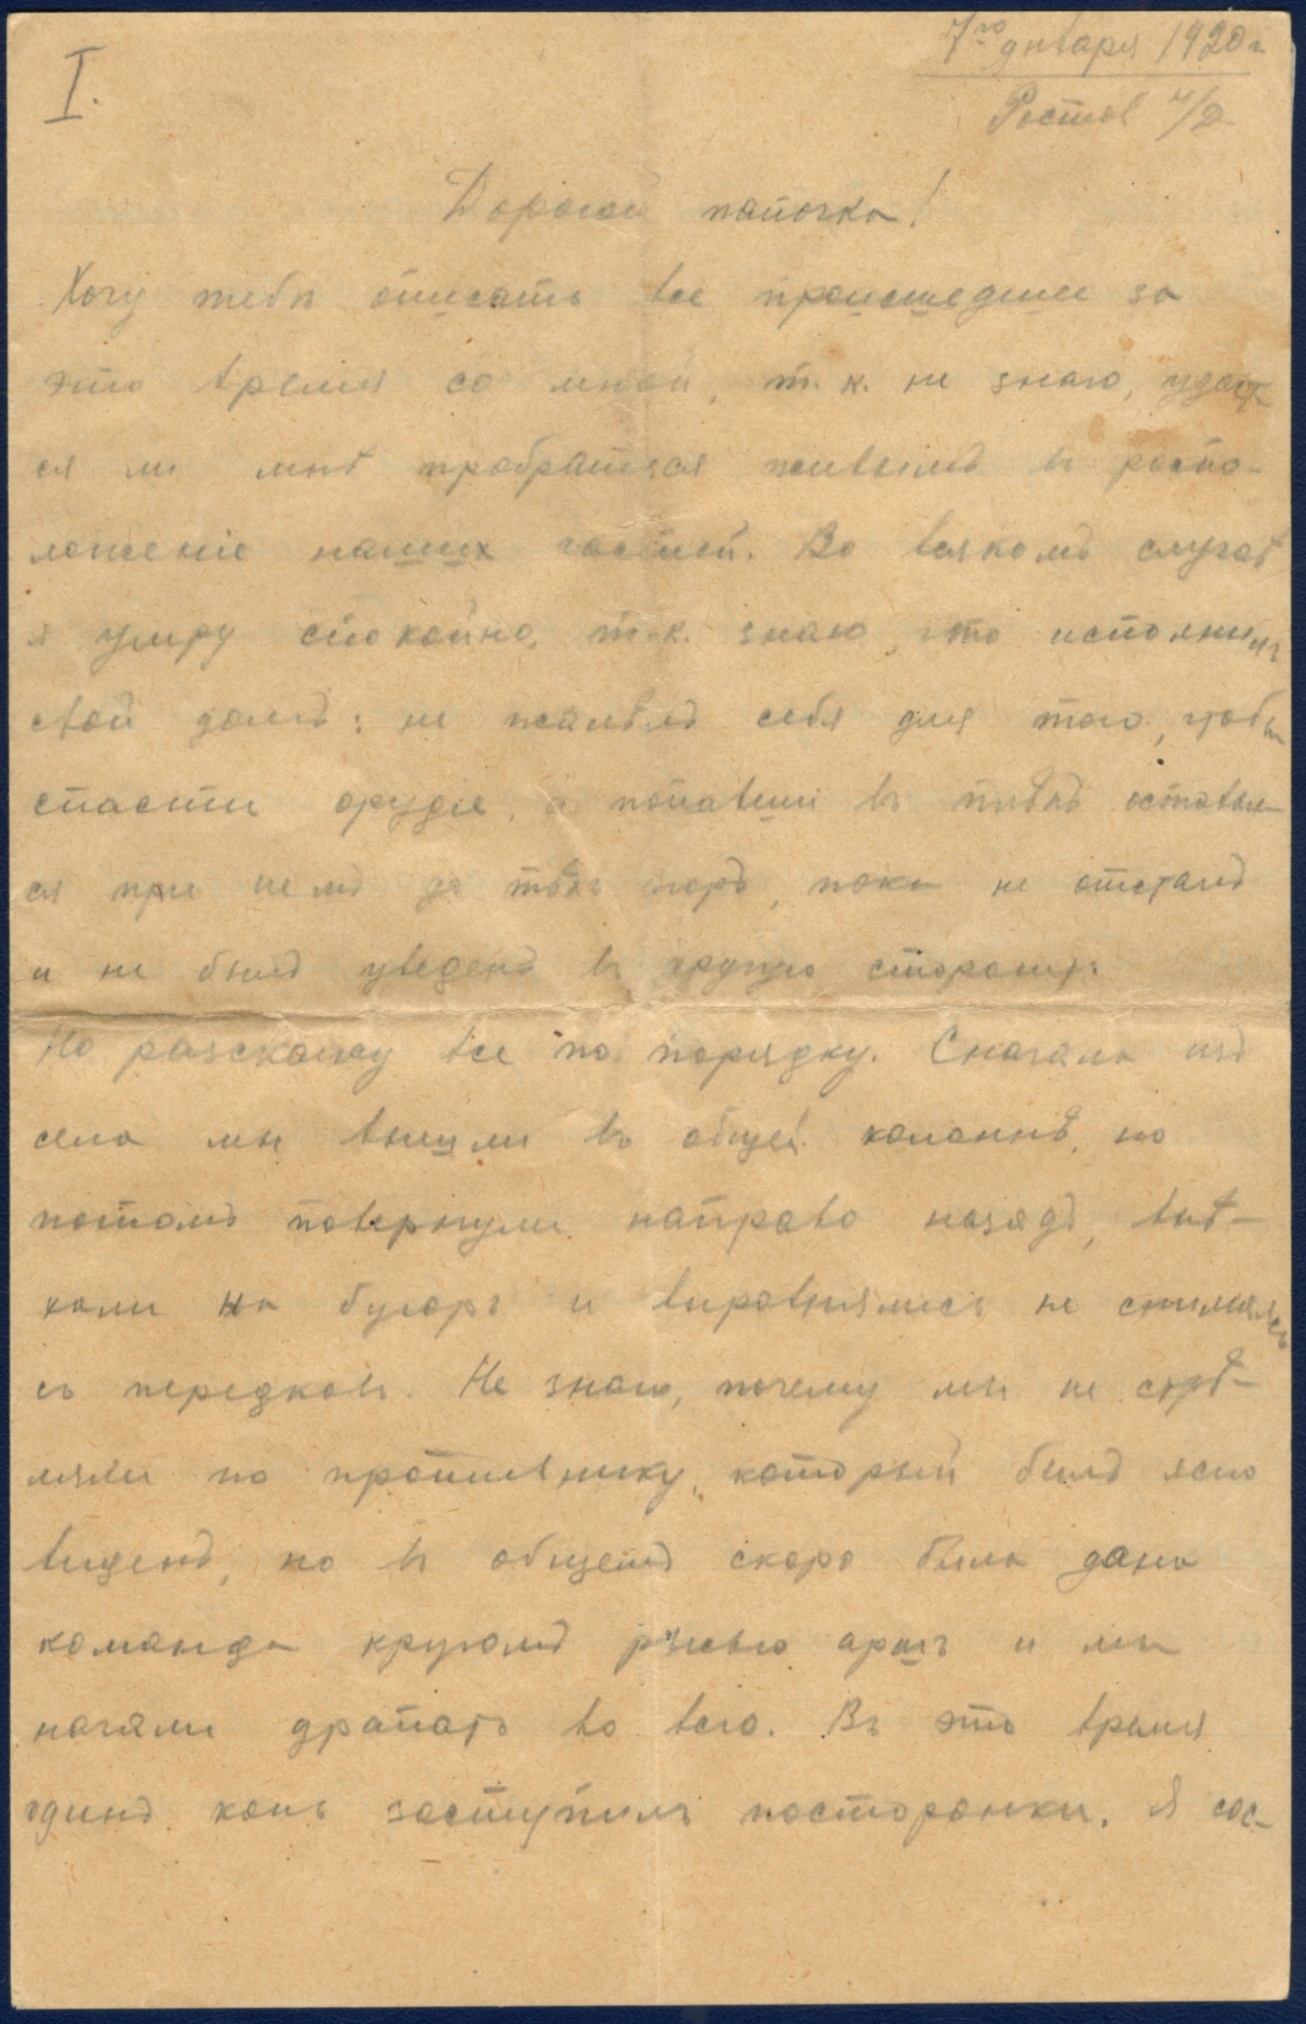 I.
7го января 1920 г.
Ростов н/Д.
Дорогой папочка!
Хочу тебѣ описать все происшедшее за
это время со мной, т. к. не знаю, удаст-
ся ли мнѣ пробраться живымъ въ распо-
ложеніе нашихъ частей. Во всякомъ случаѣ
я умру спокойно, т. к. знаю, что исполнилъ
свой долгъ: не жалѣлъ себя для того, чтобы
спасти орудіе, а попавши въ плѣнъ оставал-
ся при немъ до тѣхъ поръ, пока не отсталъ
и не былъ уведенъ въ другую сторону.
Но разскажу все по порядку. Сначала изъ
села мы вышли въ общей колоннѣ, но
потомъ повернули направо назадъ, въѣ-
хали на бугоръ и выровнялись не снимаясь
съ передковъ. Не знаю, почему мы не стрѣ-
ляли по противнику, который былъ ясно
виденъ, но въ общемъ скоро была дана
команда кругомъ рысью аршъ и мы
начали драпать во всю. Въ это время
одинъ конь заступилъ постромки. Я сос-